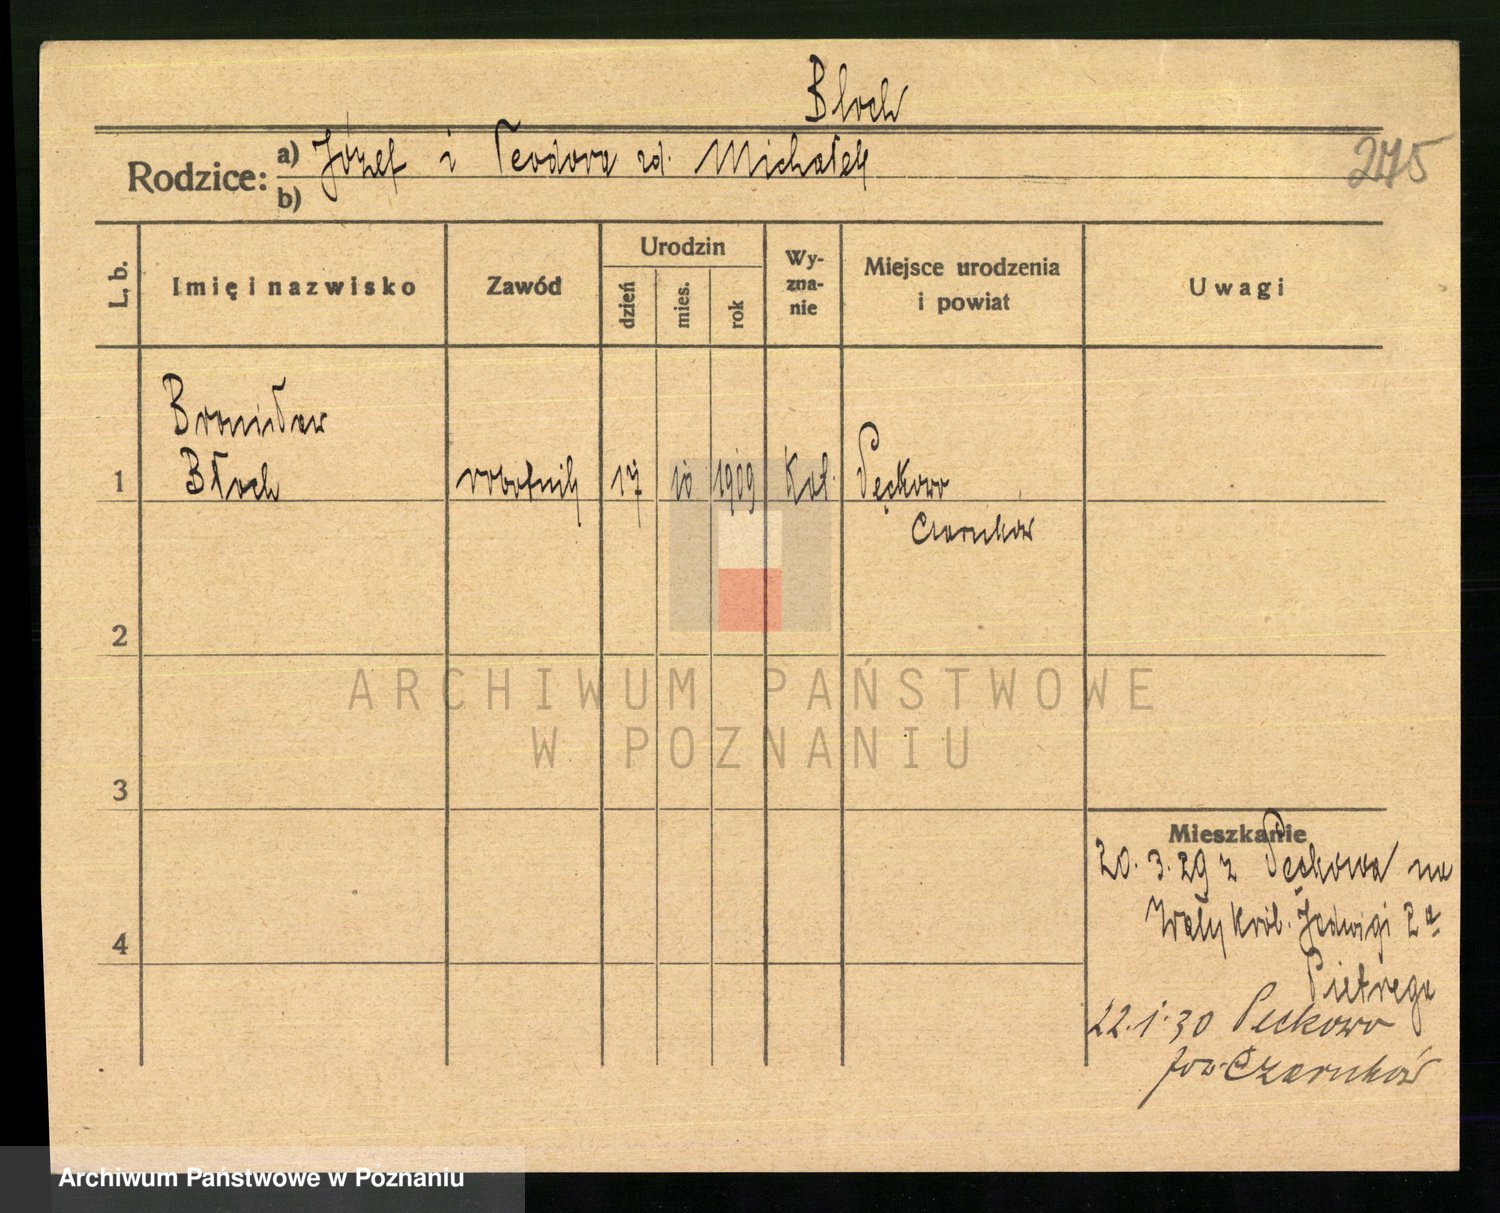 Błoch
Rodzice: a) Józef i Teodora zd. Michałek
b)
275
L. b.
Imię i nazwisko
Zawód
Urodzin
dzień
mies.
rok
Wy-
zna-
nie
Miejsce urodzenia
i powiat
Uwagi
Bronisław
1 Błoch robotnik 17 10 1909 Kat. Pęckowo
Czarnków
2
ARCHIWUM PAŃSTWOWE
W POZNANIU
3
Mieszkanie
20. 3. 29 z Pęckowa na
Wały Król. Jadwigi 2a
4
Pietrega
22. 1. 30 Peckowo
pow. Czarnków
Archiwum Państwowe w Poznaniu